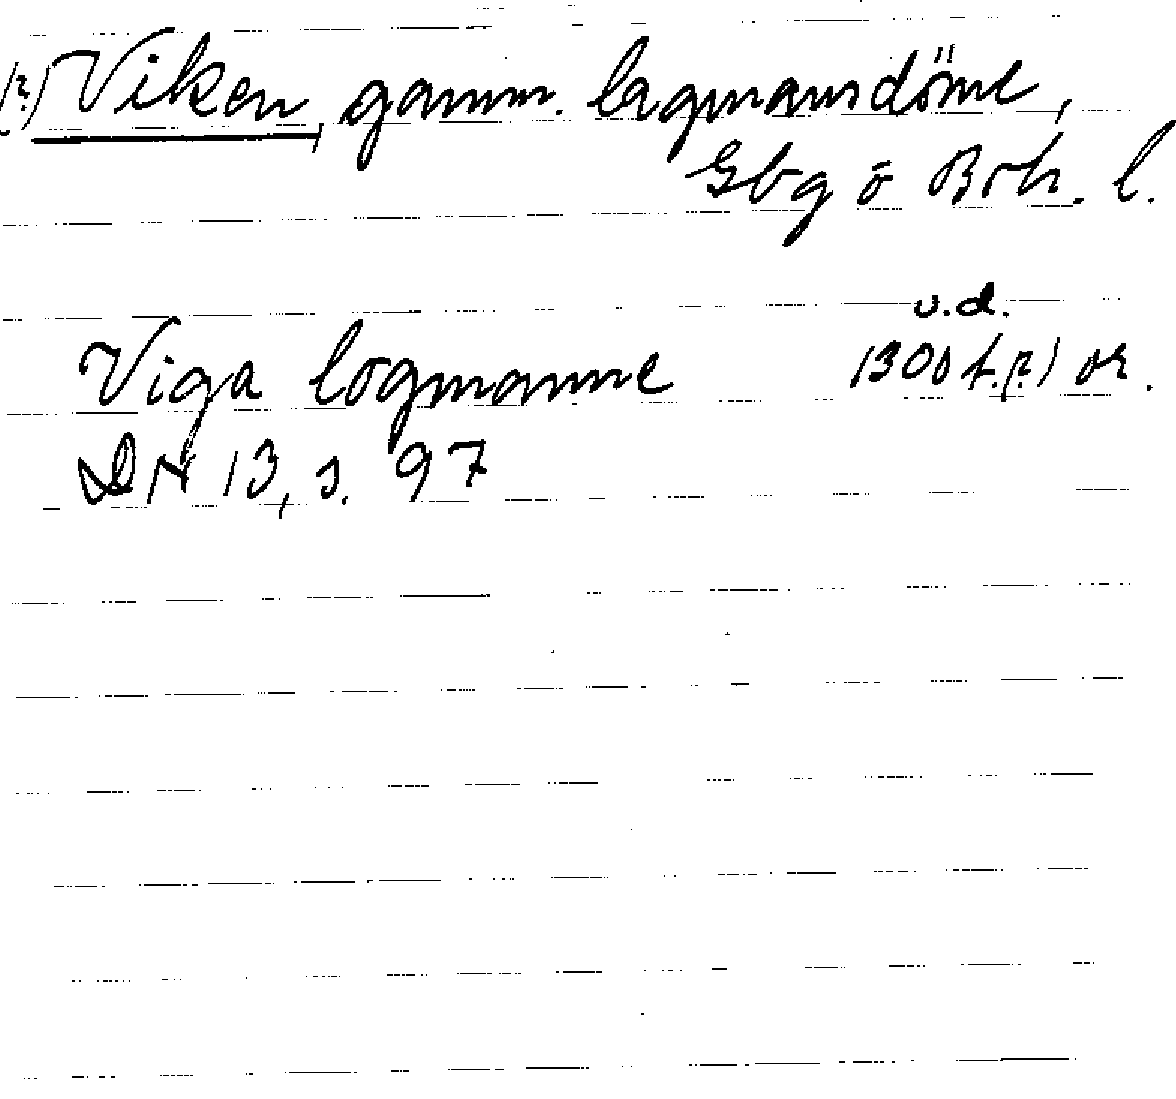 (?) Viken, gamm. lagmansdöme,
Gbg o Boh. l.
u.d.
Viga logmanne 1300 t.(?) or.
DN 13, s. 97